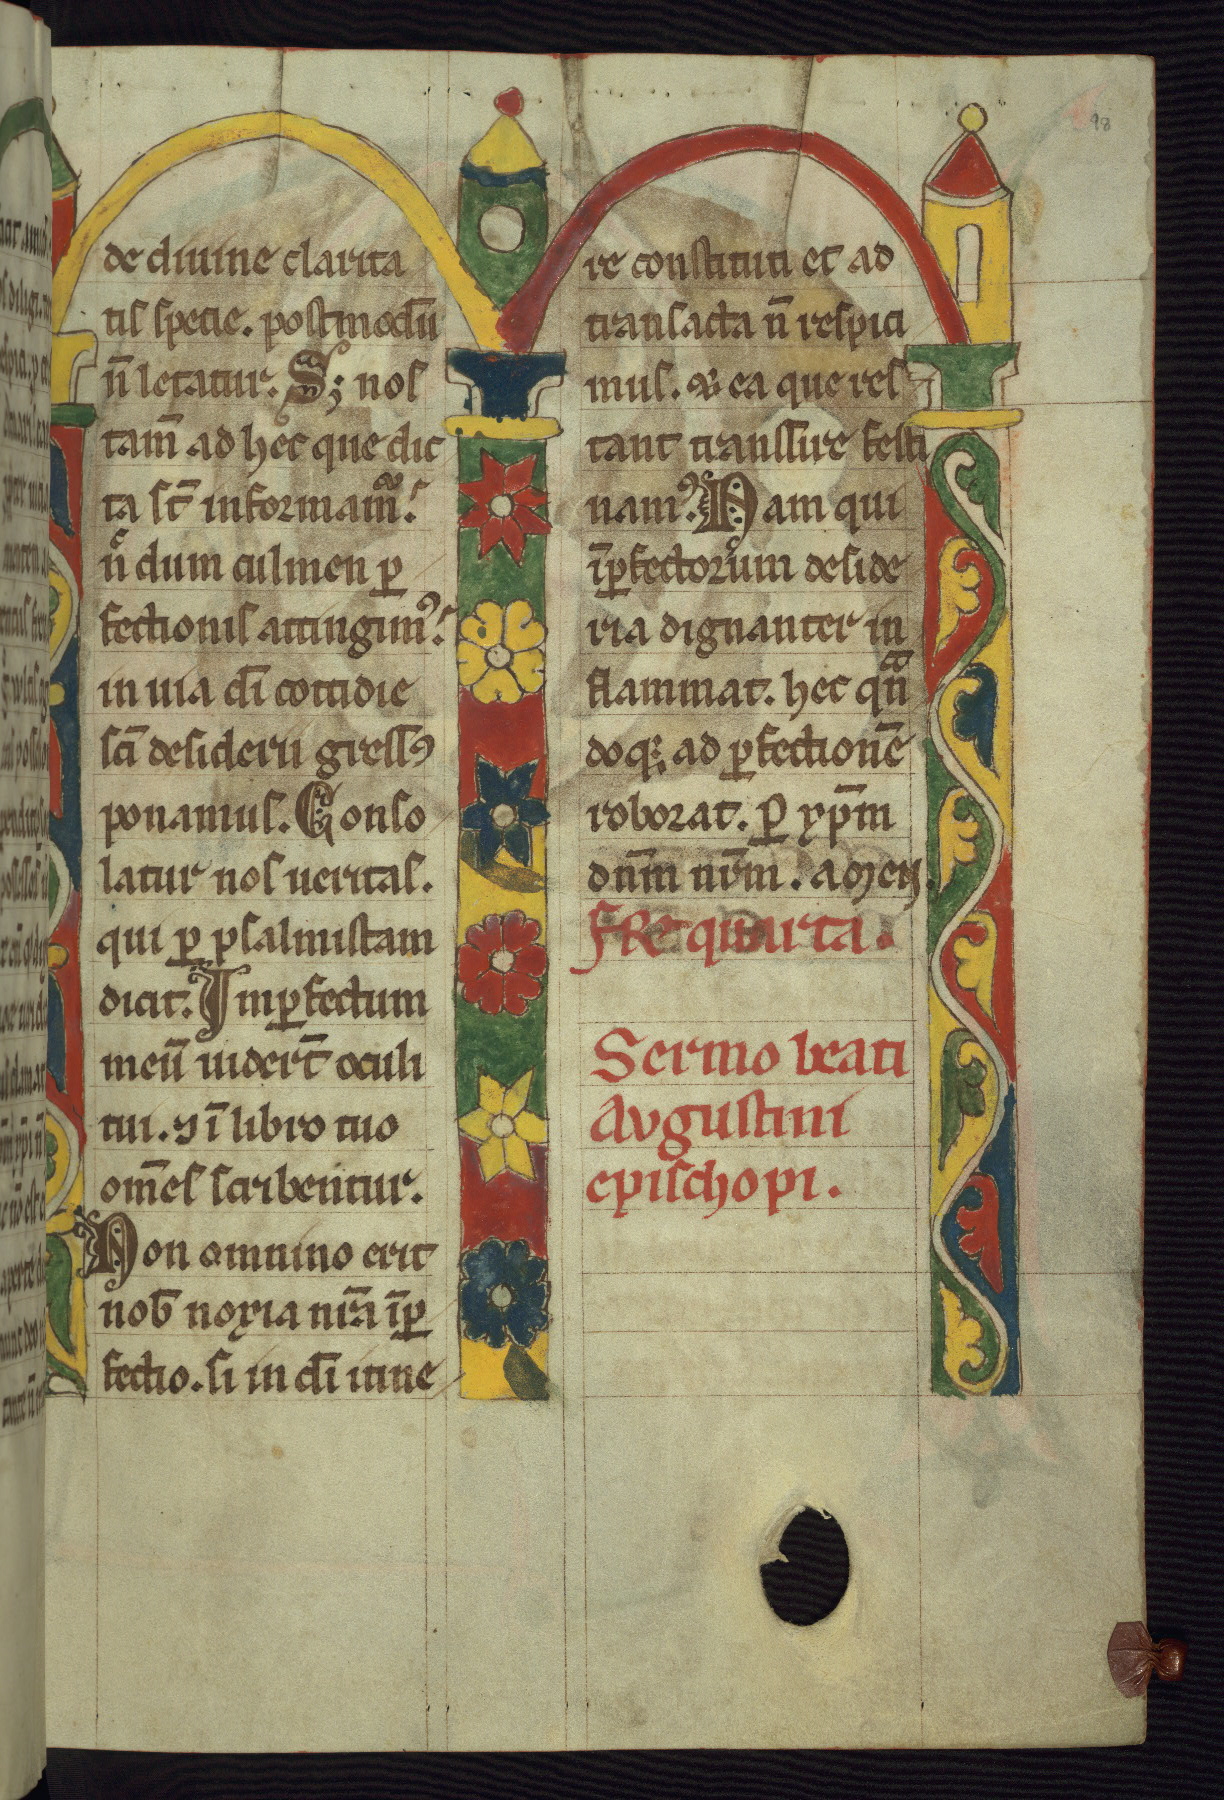 98
de diuine clarita
tis specie. postmodū
n̄ letatur. S; nos
tam̄ ad hec que dic
ta st̄ informam᷒.
ñ dum culmen ꝑ
fectionis attingim᷒.
in uia dī cottidie
sc̄i desiderii gress᷒
ponamus. Conso
latur nos ueritas.
qui ꝑ psalmistam
dicit. Imꝑfectum
meū uidert̄ oculi
tui. ⁊ ī libro tuo
om̄es scribentur.
Non omnino erit
nob̄ noxia nr̄a īꝑ
fectio. si in dī itine
re constituti et ad
transacta n̄ respici
mus. ⁊ ea que res
tant transsire festi
nam᷒. Nam qui
īꝑfectorum deside
ria dignanter in
flammat. hec qn̄
doq; ad ꝑfectionē
roborat. ꝑ xp̄m
dn̄m nr̄m. amen.
FRe quarta.
Sermo beati
Avgustini
epischopi.